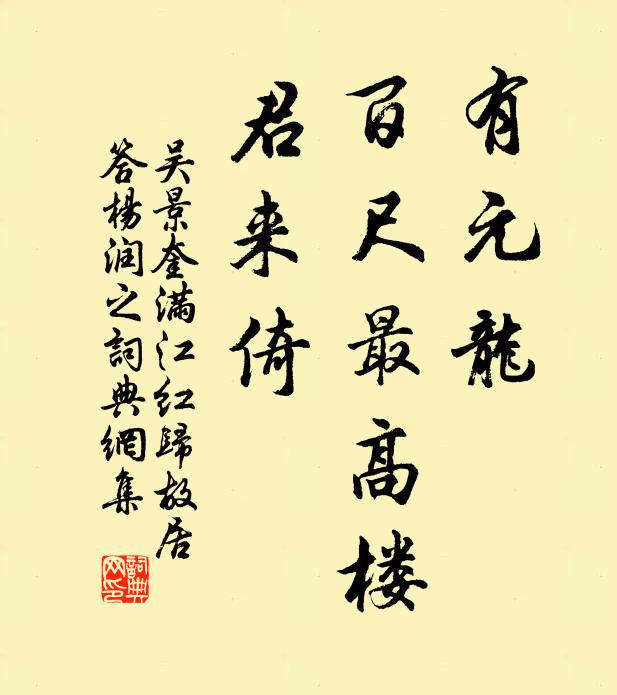 有元龍
百尺最高楼
君来倚
吴景奎满江红歸故居
答楊润之詞典網集
詞典
网印